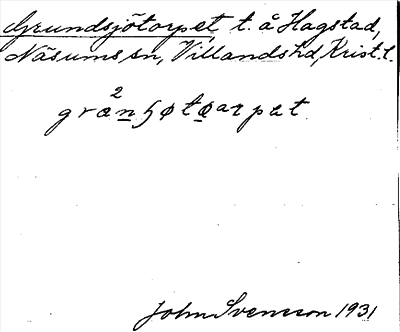 Grundsjötorpet t. å Hagstad,
Näsums sn, Villands hd, Krist. l.
John Svensson 1931